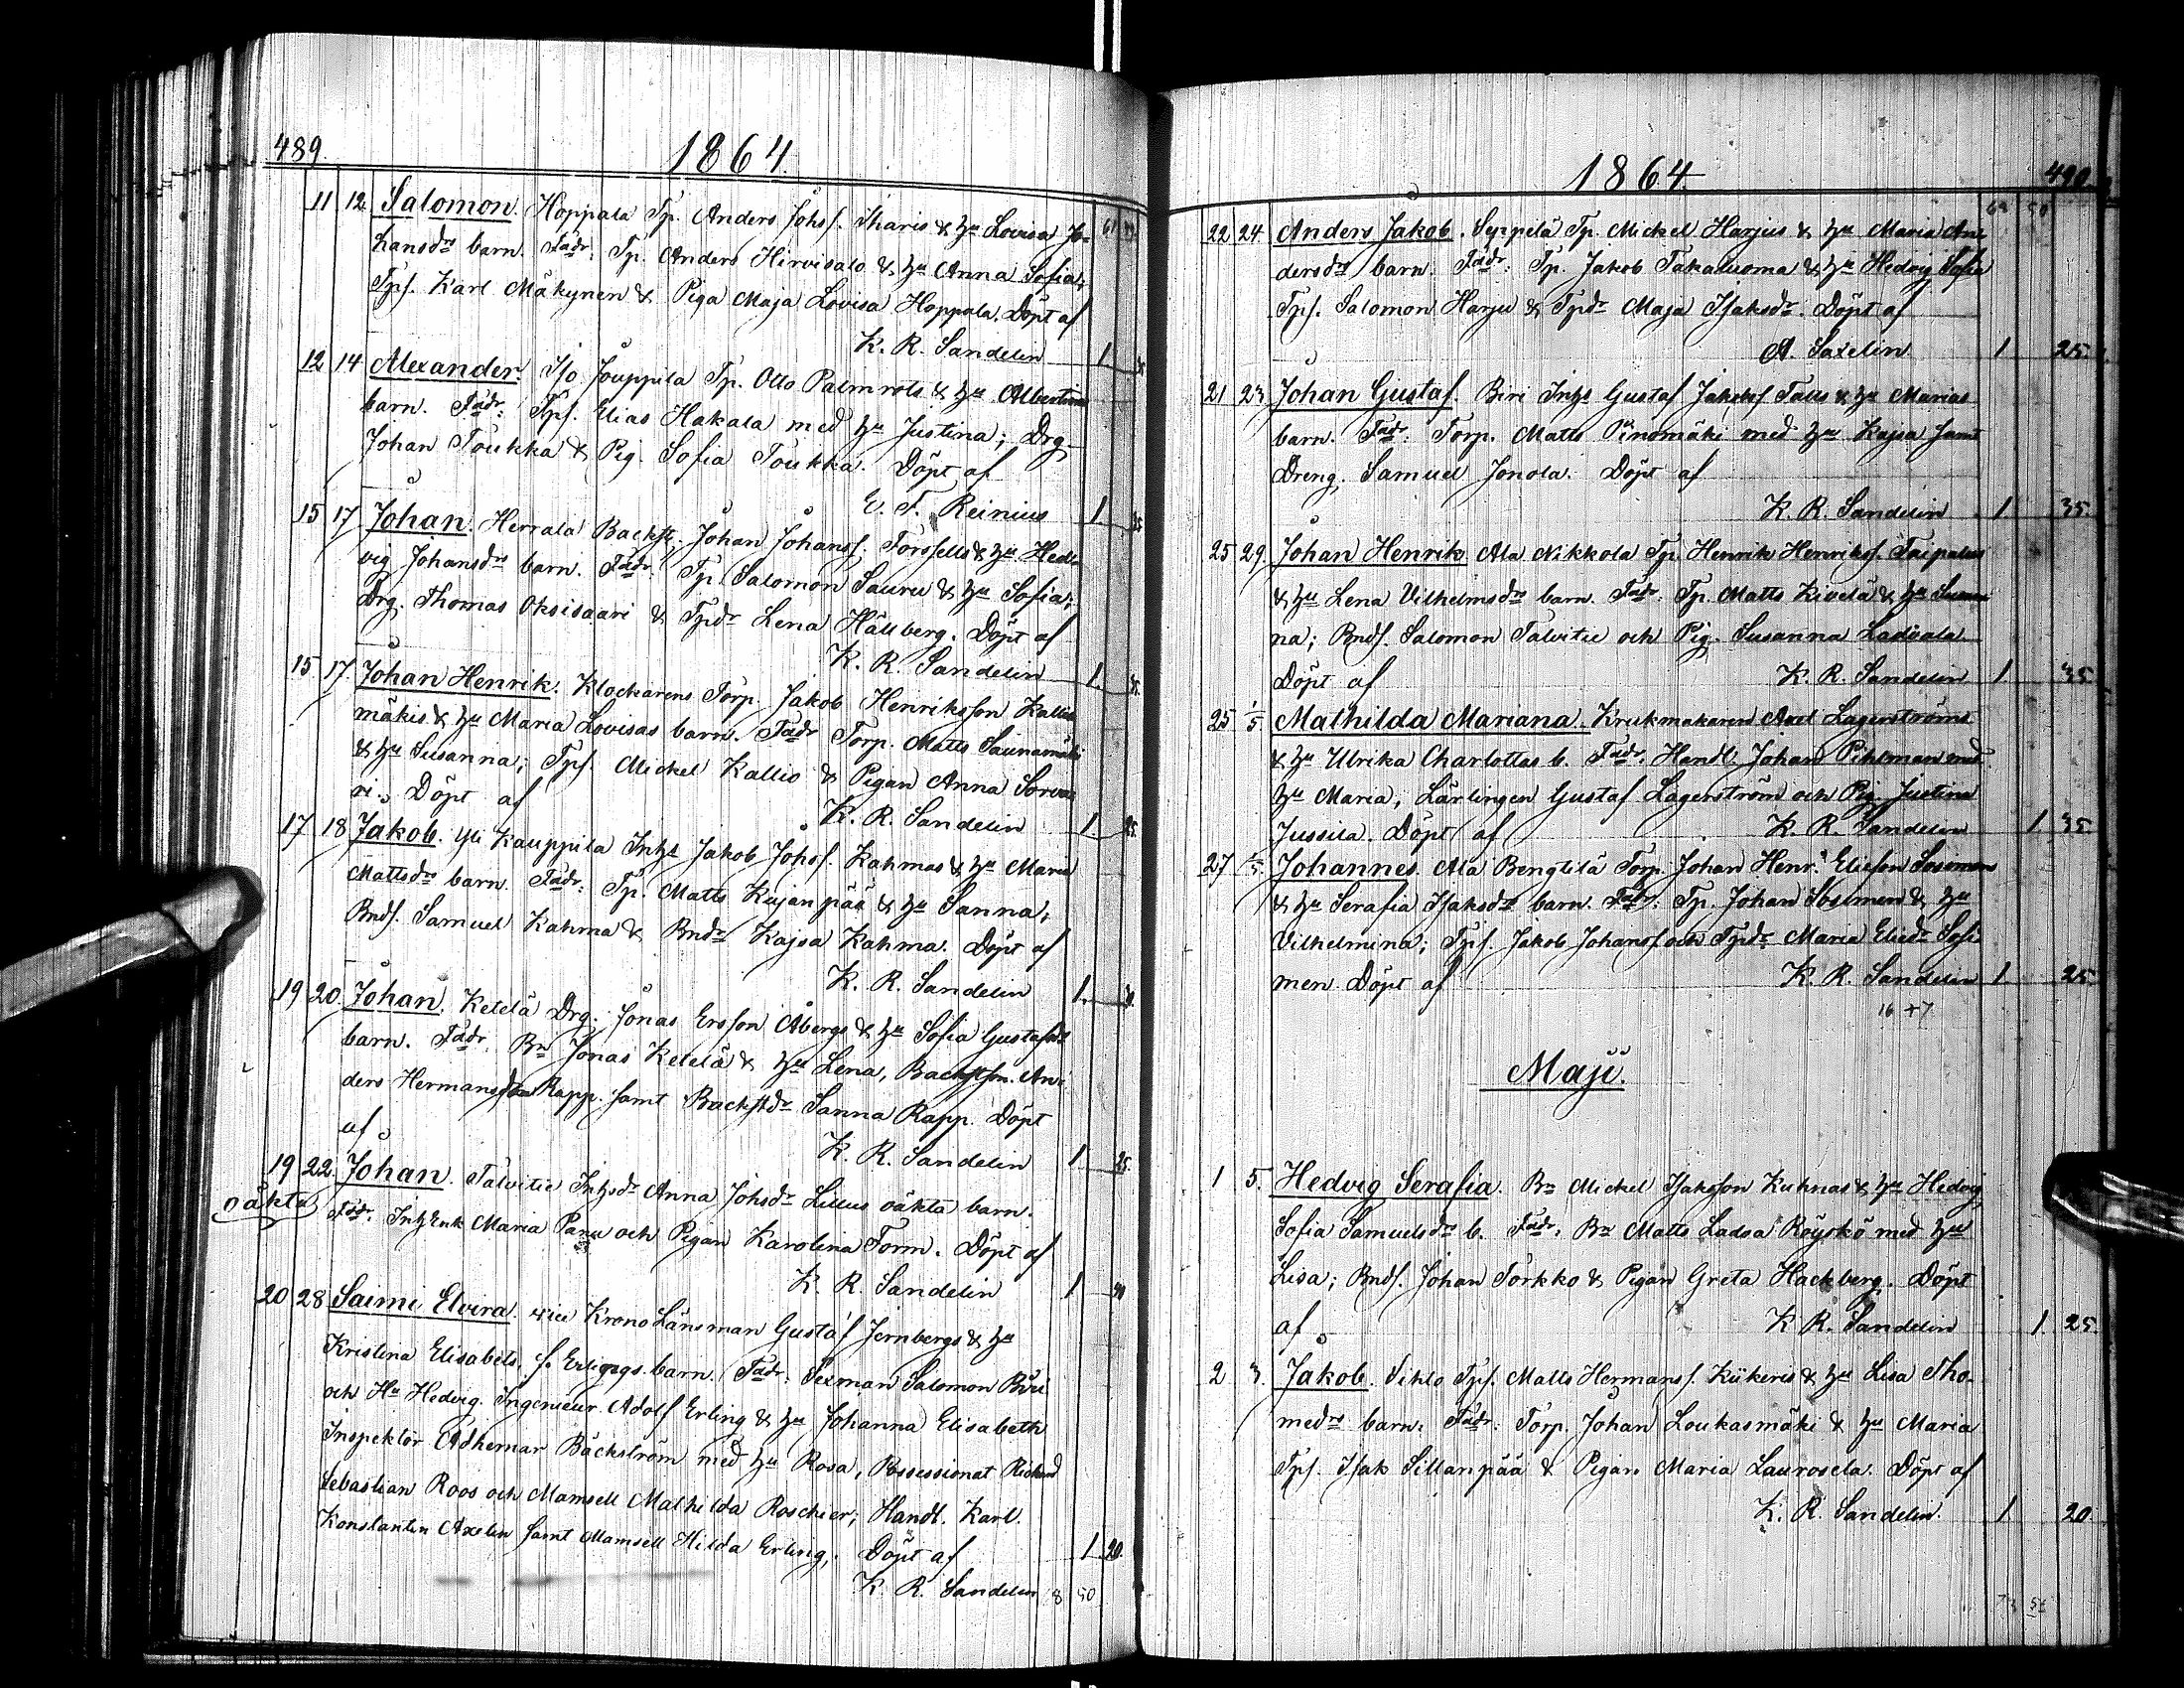 489.
1864.
11 12. Salomon. Hoppala Tp. Anders Johs. Iharis & Hu Lovisa Jo-
hansdrs barn. Fadr: Tp. Anders Hirvisalo & Hu Anna Sofia;
Tps. Karl Mäkynen & Piga Maja Lovisa Hoppala. Döpt af
K. R. Sandelin 1
12 14 Alexander. Iso Jouppila Tp. Otto Palmrots & Hu Albertina
barn. Fadr: Tps. Elias Hakala med Hu Justina; Drg
Johan Toukka & Pig. Sofia Toukka. Döpt af
E. F. Reinius 1
15 17 Johan. Herrala Backst. Johan Johanss. Forssells & Hu Hed-
vig Johansdrs barn. Fadr: Tp. Salomon Sauru & Hu Sofia;
Drg. Thomas Oksisaari & Tpdr Lena Hällberg. Döpt af
K. R. Sandelin 1.
15. 17. Johan Henrik. Klockarens Torp. Jakob Henriksson Kallio
mäkis & Hu Maria Lovisas barn. Fadr Torp. Matts Saunamäki
& Hu Susanna; Tps. Mickel Kallio & Pigan Anna
ri. Döpt af K. R. Sandelin 1. 25.
17 18 Jakob. Yli Kauppila Inhs Jakob Johss. Kahmas & Hu Maria
Mattsdrs barn. Fadr: Tp. Matts Kujanpää & Hu Sanna;
Bnds. Samuel Kahma & Bndr Kajsa Kahma. Döpt af
K. R. Sandelin 1.
19 20. Johan. Ketelä Drg. Jonas Ersson Åbergs & Hu Sofia Gustafsdrs
barn. Fadr. Bn Jonas Ketelä & Hu Lena, Backstsn. An-
ders Hermansson Rapp samt Backstdr Sanna Rapp. Döpt
af K. R. Sandelin 1 25.
19 22. Johan. Talvitie Inhsdr Anna Johsdr Lillus oäkta barn.
oäkta Fadr. InhEnk Maria Panu och Pigan Karolina Form. Döpt af
K. R. Sandelin 1
20 28 Saimi Elvira. vice KronoLänsman Gustaf Jernbergs & Hu
Kristina Elisabets, f. Erlings barn. Fadr: Sexman Salomon Biri
och Hu Hedvig. Ingenieur Adolf Erling & Hu Johanna Elisabeth
Inspektor Adhemar Bäckström med Hu Rosa, Possessionat Richard
Sebastian Roos och Mamsell Mathilda Roschier; Handl. Karl
Konstantin Axelin samt Mamsell Hilda Erling. Döpt af 1 20.
K. R. Sandelin 8 50
1864.
490.
22 24. Anders Jakob. Seppilä Tp. Mickel Harjus & Hu Maria An-
dersdrs barn. Fadr: Tp. Jakob Takaluoma & Hu Hedvig Sofia
Tps. Salomon Harju & Tpdr Maja Isaksdr. Döpt af
A. Saxelin 1 25.
21 23 Johan Gustaf. Biri Inhs Gustaf Jakobss Talus & Hu Marias
barn. Fadr: Torp. Matts Pinomäki med Hu Kajsa samt
Dreng. Samuel Jonola. Döpt af
K. R. Sandelin 1. 35.
25 29. Johan Henrik. Ala Nikkola Tp. Henrik Henrikss. Taipalus
& Hu Lena Vilhelmsdrs barn. Fadr: Tp. Matts Kivelä & Hu Susan
na; Bnds. Salomon Talvitie och Pig. Susanna Ladvala
Döpt af K. R. Sandelin 1 35
25 1/5. Mathilda Mariana. Krukmakaren Axel Lagerströms
& Hu Ulrika Charlottas b. Fadr. Handl. Johan Pihlman med
Hu Maria; Lärlingen Gustaf Lagerström och Pig. Justina
Jussila. Döpt af K. R. Sandelin 1 35.
27 1/5. Johannes. Ala Bengtilä Torp. Johan Henr. Eliesson Sosimens
& Hu Serafia Isaksdrs barn. Fadr: Tp. Johan Sosimen & Hu
Vilhelmina; Tps. Jakob Johanss och Tpdr Maria Eliedr Sosi-
men Döpt af K. R. Sandelin 1. 25.
16 + 7
Maji.
1 5. Hedvig Serafia. Bn Mickel Isaksson Kuhnas & Hu Hedvig
Sofia Samuelsdrs b. Fadr. Bn Matts Ladva Röyskö med Hu
Lisa; Bnds. Johan Torkko & Pigan Greta Hackberg. Döpt
af K. R. Sandelin 1. 25.
2 3. Jakob. Sihto Tps. Matts Hermanss. Kiikeris & Hu Lisa Tho-
medrs barn. Fadr: Torp. Johan Loukasmäki & Hu Maria
Tps. Isak Sillanpää & Pigan Maria Laurosela. Döpt af
K. R. Sandelin. 1. 20.